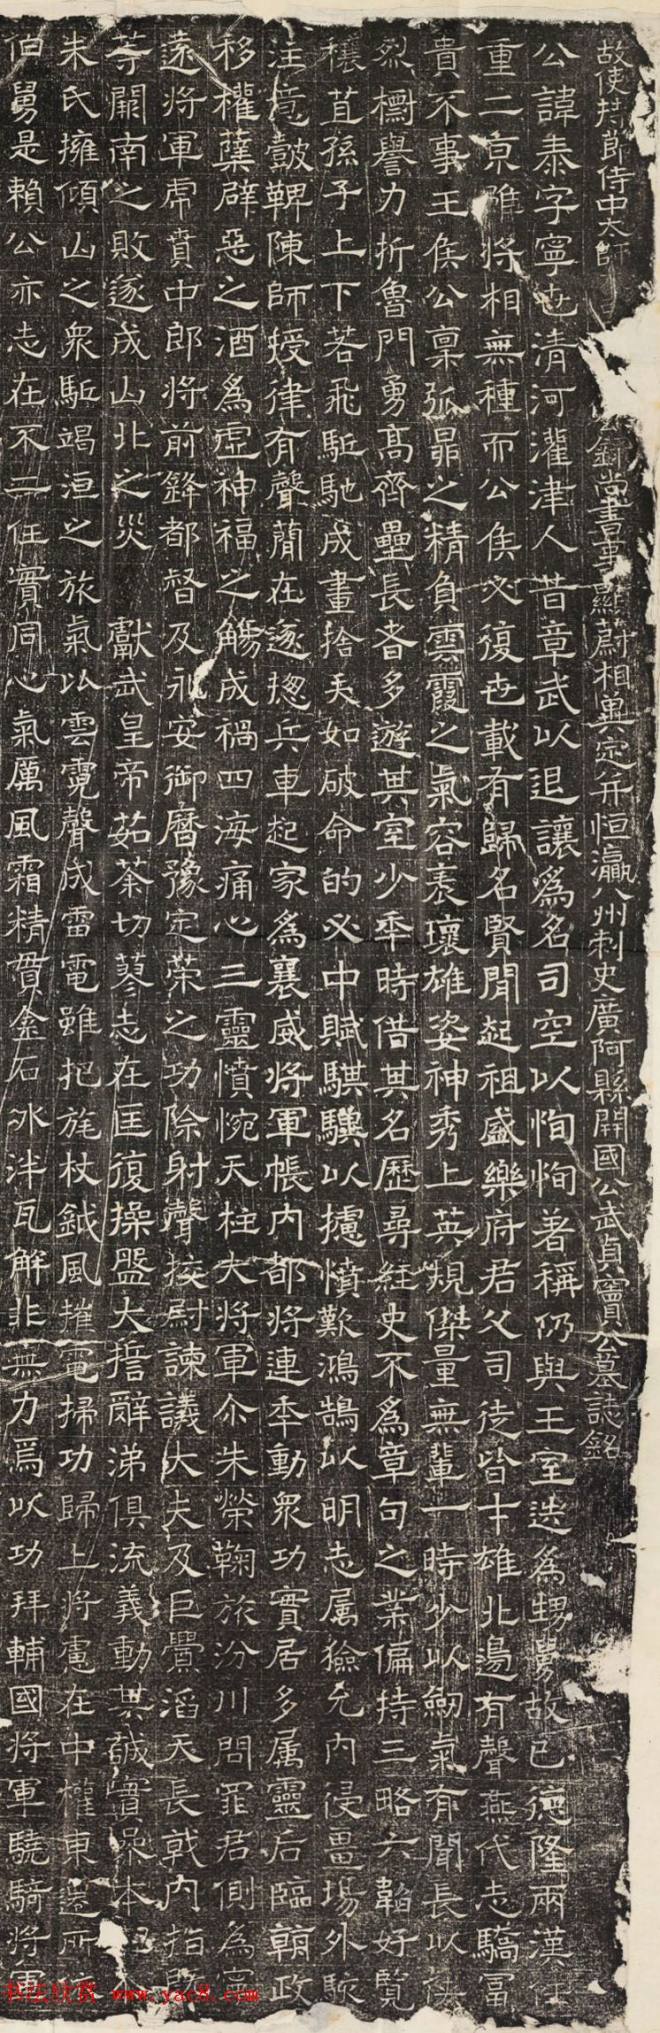 故使持節侍中太師 錄尚書事 顯蔚相冀定并恒瀛八州刺史廣阿縣開國公武貞竇公墓誌銘
公諱泰字寧世清河灌津人昔章武以退讓爲名司空以恂恂著稱仍與王室迭爲甥舅故已德隆兩漢任
重二京雖將相無種而公侯必復世載有歸名賢閒起祖盛樂府君父司徒皆才雄北邊有聲燕代志驕富
貴不事王侯公稟弧昴之精負雲霞之氣容表瓌雄姿神秀上英規傑量無輩一時少以劒氣有聞長以俠
烈標譽力折魯門勇高齊壘長者多遊其室少年時借其名歷尋經史不爲章句之業偏持三略六韜好覽
穰苴孫子上下若飛駈馳成畫捨矢如破命的必中賦騏驥以攄憤歎鴻鵠以明志属獫允內侵畺埸外駭
注意鼓鞞陳師授律有聲蕳在遂揔兵車起家爲襄威將軍帳內都將連年動衆功實居多属靈后臨朝政
移權孽辟惡之酒爲虛神福之觴成禍四海痛心三靈憤惋天柱大將軍尒朱榮鞠旅汾川問罪君側爲寧
遠將軍虎賁中郎將前鋒都督及永安御曆豫定榮之功除射聲挍尉諫議大夫及巨舋滔天長戟內指
苓闕南之敗遂成山北之災 獻武皇帝茹荼切蓼志在匡復操盤大誓辭涕俱流義動其誠實
朱氏擁傾山之衆駈竭洹之旅氣以雲霓聲成雷電雖把旄杖鉞風摧電掃功歸上將慮在中權東
伯舅是賴公亦志在不二任實同心氣厲風霜精貫金石冰泮瓦解非無力焉以功拜輔國將軍驍騎將軍
书法欣赏 www.yac8.com